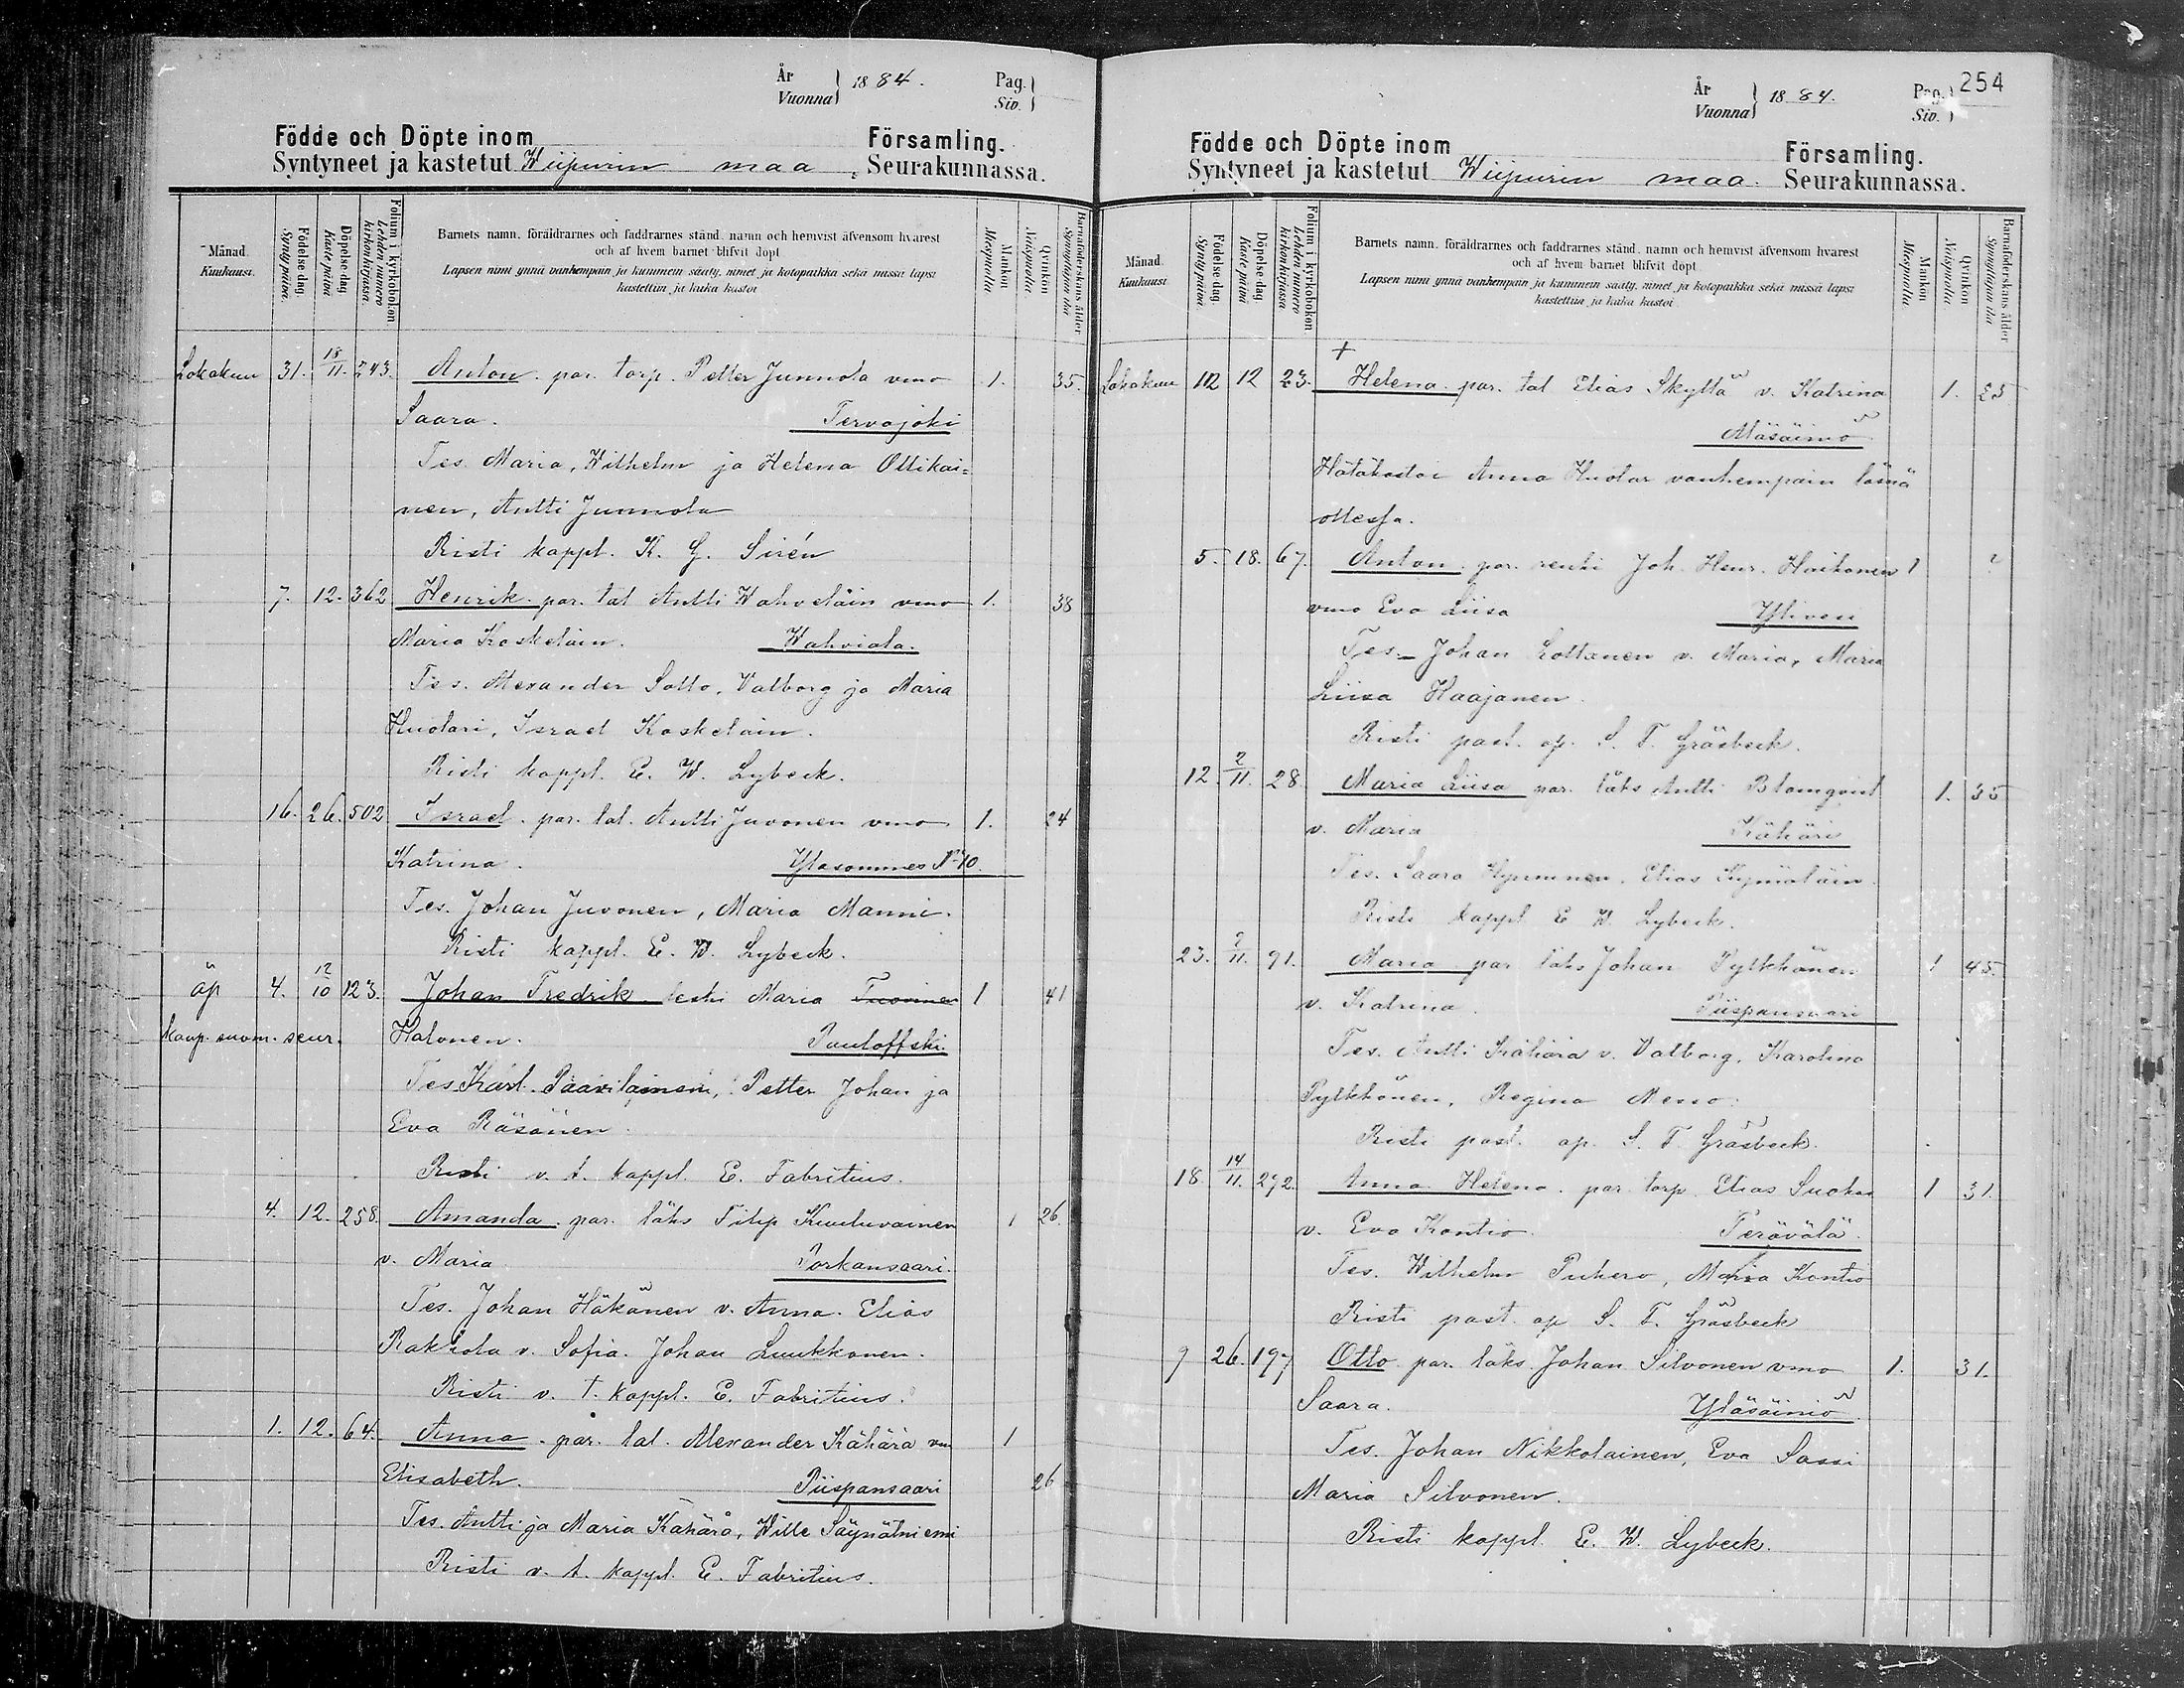 År
Vuonna } 1884.
Pag.
Siv. }
Födde och Döpte inom Församling.
Syntyneet ja kastetut Wiipurin maa Seurakunnassa.
Månad. Kuukausi.
Födelse dag. Synty päivä.
Döpelse dag. Kaste päivä
Folium i kyrkobokon. Lehden numero kirkonkirjassa.
Barnets namn, föräldrarnes och faddrarnes stånd, namn och hemvist äfvensom hvarest
och af hvem barnet blifvit döpt
Lapsen nimi ynnä vanhempain ja kummein sääty, nimet ja kotopaikka sekä missä lapsi
kastettiin ja kuka kastoi
Mankön Miespuolia.
Qvinkön Naispuolia.
Barnaföderskans ålder Synnyttäjän ikä
Lokakuu 31. 18/11. 243. Anton. par. torp. Petter Junnola vmo 1. 35.
Saara. Tervajoki
Tes. Maria, Wilhelm ja Helena Ollikai=
nen, Antti Junnola
Risti kappl. K. G. Sirén
7. 12. 362 Henrik. par. tal Antti Wahveläin vmo 1. 38
Maria Koskeläin. Wahviala.
Tes. Alexander Sotto, Valborg ja Maria
Huolari, Israel Koskelain.
Risti kappl. E. W. Lybeck.
16. 26. 502 Israel. par. tal. Antti Juvonen vmo 1. 24
Katrina. Yläsommee No 10.
Tes. Johan Juvonen, Maria Manni.
Risti kappl. E. W. Lybeck.
äp 4. 12/10 123. Johan Fredrik leski Maria Tuovinen 1 41
kaup. suom. seur. Halonen. Pauloffski.
Tes. Karl Paavilainen, Petter Johan ja
Eva Räsänen.
Risti v. t. kappl. E. Fabritius.
4. 12. 258. Amanda. par. läks Filip Kuuluvainen 1 26.
v. Maria Porkansaari.
Tes. Johan Häkänen v. Anna. Elias
Rakkola v. Sofia. Johan Luukkonen.
Risti v. t. kappl. E. Fabritius.
1. 12. 64. Anna. par. tal. Alexander Kähärä vm 1
Elisabeth. Piispansaari 26
Tes. Antti ja Maria Kähärä, Wille Säynätniemi
Risti v. t. kappl. E. Fabritius.
År
Vuonna } 1884.
Pag.
Siv. } 254
Födde och Döpte inom Församling.
Syntyneet ja kastetut Wiipurin maa. Seurakunnassa.
Månad. Kuukausi
Födelse dag. Synty päivä.
Döpelse dag. Kaste päivä
Folium i kyrkobokon Lehden numero kirkonkirjassa
Barnets namn, föräldrarnes och faddrarnes stånd, namn och hemvist äfvensom hvarest
och af hvem barnet blifvit döpt
Lapsen nimi ynnä vanhempain ja kummein sääty, nimet ja kotopaikka sekä missä lapsi
kastettiin ja kuka kastoi
Mankön Miespuolia.
Qvinkön Naispuolia.
Barnaföderskans ålder Synnyttäjän ikä
+
Lokakuu 12 12 23. Helena. par. tal Elias Skyttä v. Katrina 1. 25
Mäsäimö
Hätäkastoi Anna Huolar vanhempain läsnä
ollessa.
5. 18. 67. Anton. par. renki Joh. Henr. Haikonen 1 ?
vmo Eva Liisa Ylivesi
Tes. Johan Lottanen v. Maria, Maria
Liisa Haajanen.
Risti past. ap. S. T. Gräsbeck.
12. 2/11. 28. Maria Liisa par. läks Antti Blomqvist 1. 35
v. Maria Kähäri
Tes. Saara Hyminen, Elias Kymäläin.
Risti kappl E W. Lybeck.
23. 2/11. 91. Maria par läks Johan Pylkkänen 1 45.
v. Katrina. Piispansaari
Tes. Antti Kähärä v. Valborg, Karolina
Pylkkönen, Regina Messo.
Risti past. ap. S. T. Gräsbeck.
18. 14/11. 272. Anna Helena. par. torp. Elias Suokas 1 31.
v. Eva Kontio. Perävälä.
Tes. Wilhelm Puhero, Maria Kontio
Risti past. ap S. T. Gräsbeck
9 26. 197 Otto par. läks. Johan Silvonen vmo 1. 31.
Saara. Yläsäiniö.
Tes. Johan Nikkolainen, Eva Sassi
Maria Silvonen.
Risti kappl. E. W. Lybeck.